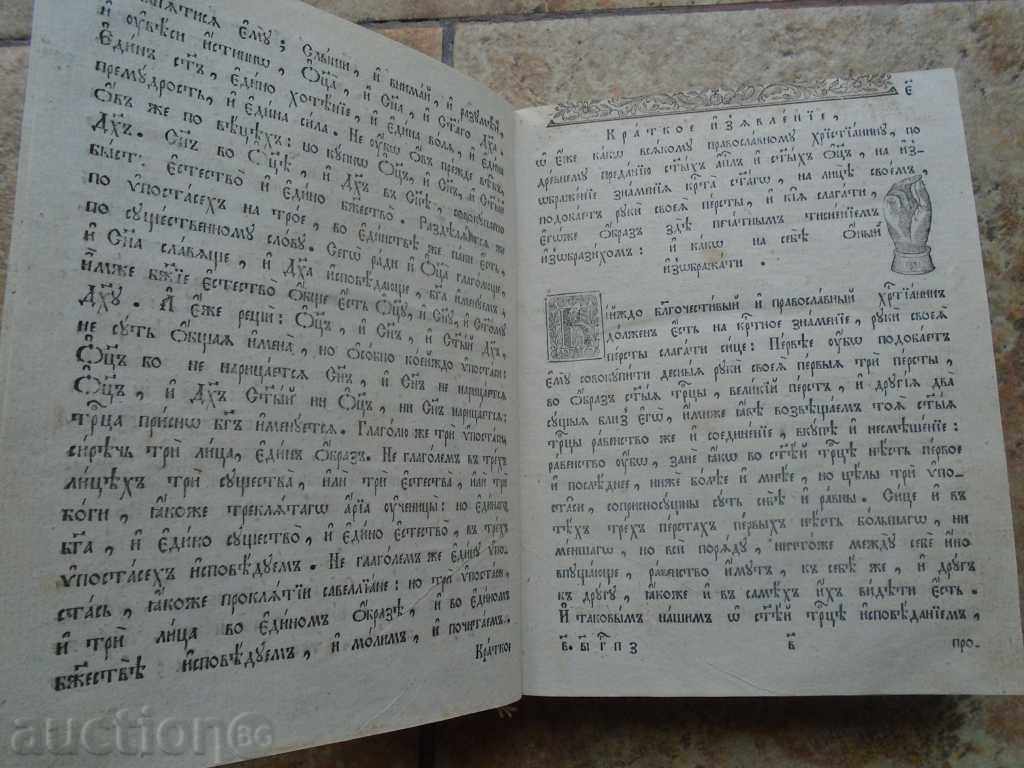 ꙗтисѧ є҆мꙋ̀; Слы́ши, и҆ внима́й, и҆ разꙋмѣ́й,
и҆ ᲂу҆вѣ́си и҆́стиннꙋ, Ѻ҆ц҃а̀, и҆ Сн҃а, и҆ Ст҃а́го Дх҃а,
є҆ди́нъ ст҃ъ, є҆ди́но хотѣ́нїе, и҆ є҆ди́на во́лѧ, и҆ є҆ди́на
премꙋ́дрость, и҆ є҆ди́на си́ла. Не ᲂу҆́бѡ ѻ҆́въ пре́жде вѣ́къ,
ѻ҆́въ же по вѣ́цѣхъ: но кꙋ́пнѡ Ѻ҆ц҃ъ, и҆ Сн҃ъ, и҆ Ст҃ы́й
Дх҃ъ. Сн҃ъ во Ѻ҆ц҃ѣ̀, и҆ Дх҃ъ въ Сн҃ѣ, совокꙋ́пленно
бы́сть. Є҆стество̀ и҆ є҆ди́но бж҃ество̀. Раздѣлѧ́етсѧ же
по ѵ҆поста́сехъ на тро́е, во є҆ди́нствѣ же па́ки є҆́сть,
по сꙋ́щественномꙋ сло́вꙋ. Сегѡ̀ ра́ди и҆ Ѻ҆ц҃а̀ глаго́люще,
и҆ Сн҃а сла́вѧще, и҆ Дх҃а и҆сповѣ́дающе, бг҃а и҆менꙋ́ем,
и҆̀мже бж҃їе є҆стество̀ ѻ҆́бще є҆́сть Ѻ҆ц҃ꙋ̀, и҆ Сн҃ꙋ, и҆ Ст҃о́мꙋ
Дх҃ꙋ. А҆ є҆́же рещѝ: Ѻ҆ц҃ъ, и҆ Сн҃ъ, и҆ Ст҃ы́й Дх҃ъ,
не сꙋ́ть ѻ҆́бщаѧ и҆мена̀, но ѻ҆со́бно коейждо ѵ҆поста́си:
Ѻ҆ц҃ъ бо не нарица́етсѧ Сн҃ъ, и҆ Сн҃ъ не нарица́етсѧ
Ѻ҆ц҃ъ, и҆ Дх҃ъ Ст҃ы́й ни Ѻ҆ц҃ъ, ни Сн҃ъ нарица́етсѧ:
трⷪ҇ца при́снѡ бг҃ъ и҆менꙋ́етсѧ. Глаго́лю же трѝ ѵ҆поста́си,
си́рѣчь трѝ лица̀, є҆ди́нъ ѻ҆́бразъ. Не глаго́лем въ тре́хъ
лицѣ́хъ трѝ сꙋщества̀, и҆лѝ трѝ є҆стества̀, и҆лѝ трѝ
бо́ги, ꙗ҆́коже треклѧ́тагѡ а҆́рїа ᲂу҆ченицы̀: но є҆ди́наго
бг҃а, и҆ є҆ди́но сꙋщество̀, и҆ є҆ди́но є҆стество̀, въ тре́хъ
ѵ҆поста́сехъ и҆сповѣ́дꙋемъ. Не глаго́лемъ же є҆ди́нꙋ ѵ҆по-
ста́сь, ꙗ҆́коже проклѧ́тїи савеллїа́не: но трѝ ѵ҆поста́си,
и҆ трѝ лица̀ во є҆ди́номъ ѻ҆́бразѣ, и҆ во є҆ди́номъ
бжⷭ҇ествѣ̀ и҆сповѣ́дꙋемъ, и҆ мо́лимъ, и҆ почита́емъ.
Кра́ткое
є҃
Кра́ткое и҆з̾ѧвле́нїе,
ѡ҆ є҆́же ка́кѡ всѧ́комꙋ правосла́вномꙋ хрⷭ҇тїа́нинꙋ, по
дре́внемꙋ преда́нїю ст҃ы́хъ а҆пⷭ҇лъ и҆ ст҃ы́хъ ѻ҆ц҃ъ, на и҆з̾-
ѡбраже́нїе зна́менїѧ крⷭ҇та̀ ст҃а́гѡ, на лицѣ̀ свое́мъ,
подоба́етъ рꙋкѝ своеѧ̀ персты̀, и҆ кі́ѧ слага́ти,
є҆гѡ́же ѻ҆́бразъ здѣ̀ печа́тнымъ тисне́нїемъ
и҆з̾ѡбрази́хомъ: и҆ ка́кѡ на себѣ̀ ѻ҆́ный
и҆з̾ѡбража́ти.
Кі́йждо благочести́вый и҆ правосла́вный хрⷭ҇тїа́нинъ
до́лженъ є҆́сть на крⷭ҇тное зна́менїе, рꙋкѝ своеѧ̀
персты̀ слага́ти си́це: Пе́рвѣе ᲂу҆́бѡ подоба́етъ
є҆мꙋ̀ совокꙋпи́ти десны́ѧ рꙋкѝ своеѧ̀ пе́рвыѧ трѝ персты̀,
во ѻ҆́бразъ ст҃ы́ѧ трⷪ҇цы, вели́кїй пе́рстъ, и҆ дрꙋгі́ѧ два̀
сꙋ́щыѧ бли́з̾ є҆гѡ̀, и҆́миже ꙗ҆́вѣ возвѣща́емъ тоѧ̀ ст҃ы́ѧ
трⷪ҇цы ра́венство же и҆ соедине́нїе, вкꙋ́пѣ и҆ несмѣше́нїе:
ра́венство ᲂу҆́бѡ, занѐ ꙗ҆́кѡ во ст҃ѣ́й трⷪ҇цѣ нѣ́сть пе́рвое
и҆ послѣ́днее, ниже бо́лѣе и҆ мнѣ́е, но цѣ́лы трѝ ѵ҆по-
ста́си, соприсносꙋ́щны сꙋ́ть себѣ̀ и҆ ра́вны. Си́це и҆ въ
тѣ́хъ трехъ перста́хъ пе́рвыхъ нѣ́сть бо́льшагѡ, ни
ме́ншагѡ, но всѝ порѧ́дꙋ, ничто́же междꙋ̀ себѐ и҆́но
впꙋща́юще, ра́венство и҆́мꙋтъ, къ себѣ́ же, и҆ дрꙋ́гъ
къ дрꙋ́гꙋ, ꙗ҆́коже и҆ въ самѣ́хъ и҆́хъ ви́дѣти є҆́сть.
И҆ таковы́мъ на́шимъ ѡ҆ ст҃ѣ́й трⷪ҇цѣ и҆сповѣ́данїемъ,
про-
auction BG